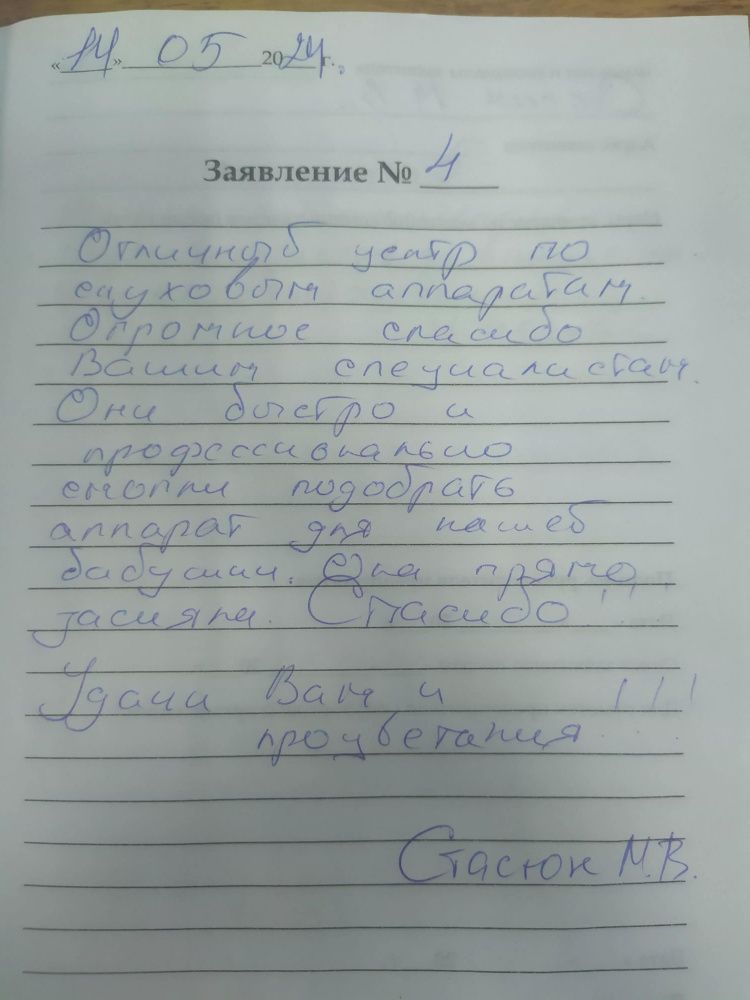 «14» 05 2024г.
Заявление № 4
Отличный центр по
слуховым аппаратам.
Огромное спасибо
Вашим специалистам.
Они быстро и
профессионально
смогли подобрать
аппарат для нашей
бабушки. Она прямо
засияла. Спасибо!!!
Удачи Вам и
процветания!!!
Стасюк М.В.